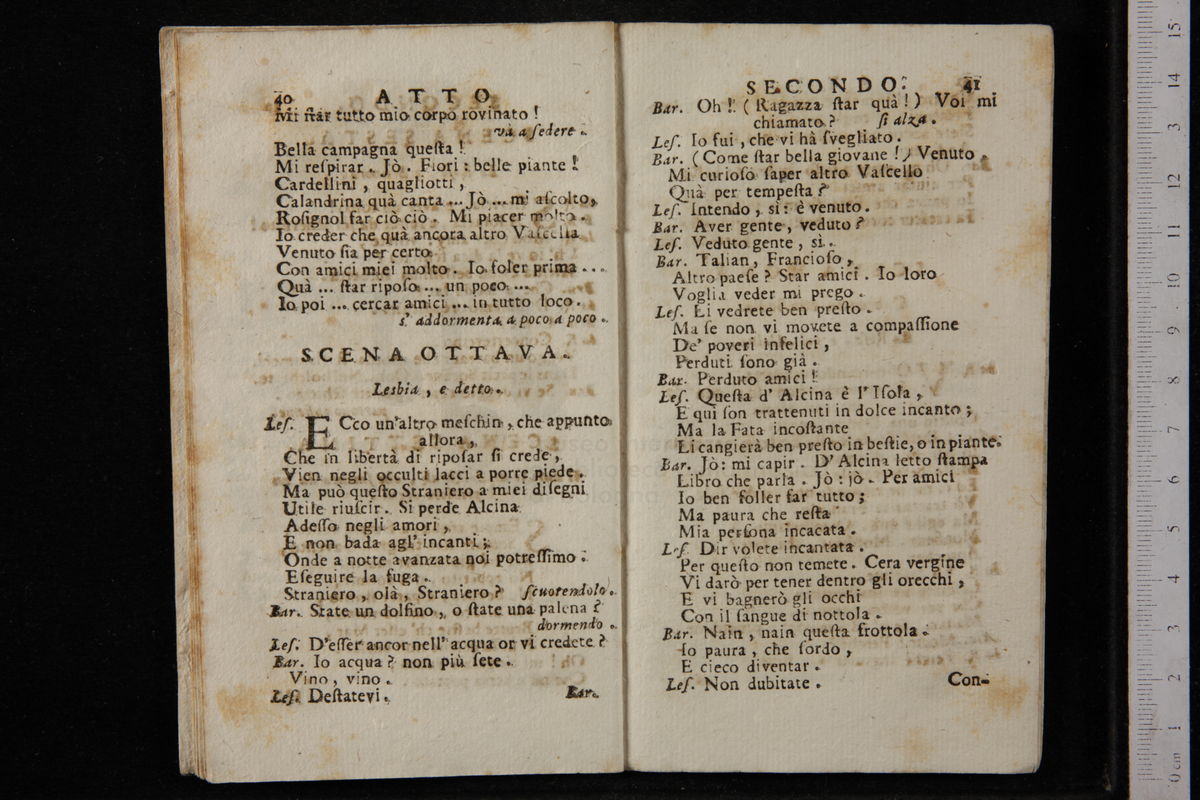 40 ATTO
Mi ſtar tutto mio corpo rovinato !
và a ſedere .
Bella campagna queſta !
Mi reſpirar . Jò . Fiori : belle piante !
Cardellini , quagliotti ,
Calandrina quà canta ... Jò ... mi aſcolto,
Roſignol far ciò ciò . Mi piacer molto .
Io creder che quà ancora altro Vaſcella
Venuto ſia per certo
Con amici miei molto . Io ſoler prima ...
Quà ... ſtar ripoſo ... un poco ...
Io poi ... cercar amici ... in tutto loco .
s' addormenta a poco a poco .
SCENA OTTAVA.
Lesbia , e detto .
Leſ. ECco un'altro meſchin, che appunto
allora ,
Che in libertà di ripoſar ſi crede ,
Vien negli occulti lacci a porre piede .
Ma può queſto Straniero a miei diſegni
Utile riuſcir . Si perde Alcina
Adeſſo negli amori ,
E non bada agl' incanti ;
Onde a notte avanzata noi potreſſimo
Eſeguire la fuga .
Straniero , olà , Straniero ? ſcuotendolo .
Bar. State un dolfino , o ſtate una palena ?
dormendo .
Leſ. D'eſſer ancor nell' acqua or vi credete ?
Bar. Io acqua ? non più ſete .
Vino , vino .
Leſ. Deſtatevi .
Bar.
SECONDO. 41
Bar. Oh ! ( Ragazza ſtar quà ! ) Voi mi
chiamato ? ſi alza .
Leſ. Io fui , che vi hà ſvegliato .
Bar. ( Come ſtar bella giovane ! ) Venuto ,
Mi curioſo ſaper altro Vaſcello
Quà per tempeſta ?
Leſ. Intendo , sì : è venuto .
Bar. Aver gente , veduto ?
Leſ. Veduto gente , sì .
Bar. Talian , Francioſo ,
Altro paeſe ? Star amici . Io loro
Voglia veder mi prego .
Leſ. Li vedrete ben preſto .
Ma ſe non vi movete a compaſſione
De' poveri infelici ,
Perduti ſono già .
Bar. Perduto amici !
Leſ. Queſta d' Alcina è l' Iſola ,
E quì ſon trattenuti in dolce incanto ;
Ma la Fata incoſtante
Li cangierà ben preſto in beſtie, o in piante.
Bar. Jò : mi capir . D' Alcina letto ſtampa
Libro che parla . Jò : jò . Per amici
Io ben ſoller far tutto ;
Ma paura che reſta
Mia perſona incacata .
Leſ. Dir volete incantata .
Per queſto non temete . Cera vergine
Vi darò per tener dentro gli orecchi ,
E vi bagnerò gli occhi
Con il ſangue di nottola .
Bar. Nain , nain queſta frottola .
Io paura , che ſordo ,
E cieco diventar .
Leſ. Non dubitate .
Con-
0 cm 1 2 3 4 5 6 7 8 9 10 11 12 13 14 15